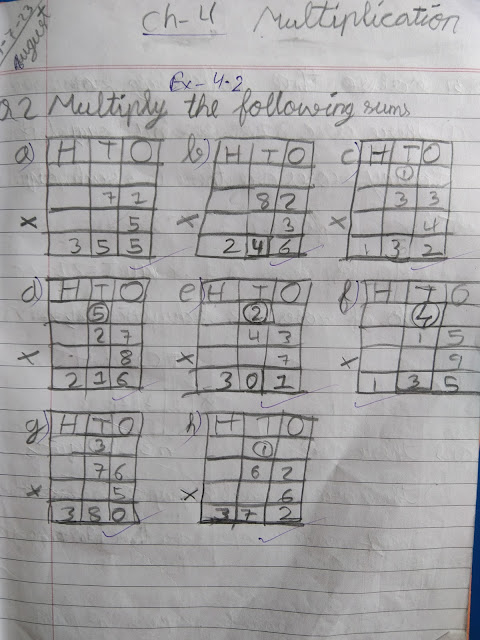 August
Ch-4 Multiplication
Ex-4.2
Q2 Multiply the following sums
a) H T O
7 1
× 5
3 5 5
b) H T O
8 2
× 3
2 4 6
c) H T O
1
3 3
× 4
1 3 2
d) H T O
5
2 7
× 8
2 1 6
e) H T O
2
4 3
× 7
3 0 1
f) H T O
4
1 5
× 9
1 3 5
g) H T O
3
7 6
× 5
3 8 0
h) H T O
1
6 2
× 6
3 7 2